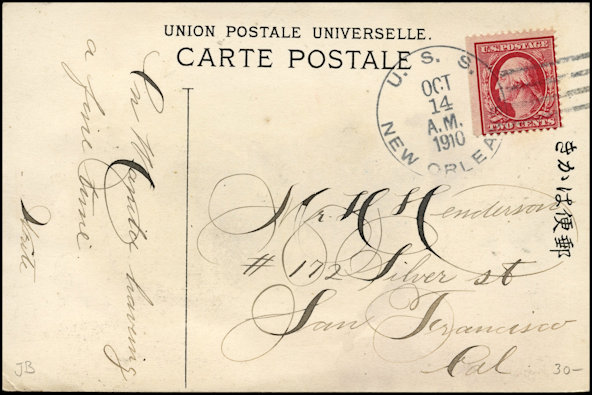 UNION POSTALE UNIVERSELLE.
CARTE POSTALE
U. S. S.
OCT
14
A.M.
1910
NEW ORLEA
U.S. POSTAGE
TWO CENTS
きかは便郵
Mr H Henderson
# 172 Silver st
San Francisco
Cal.
In Manila having
a fine time
JB
30-